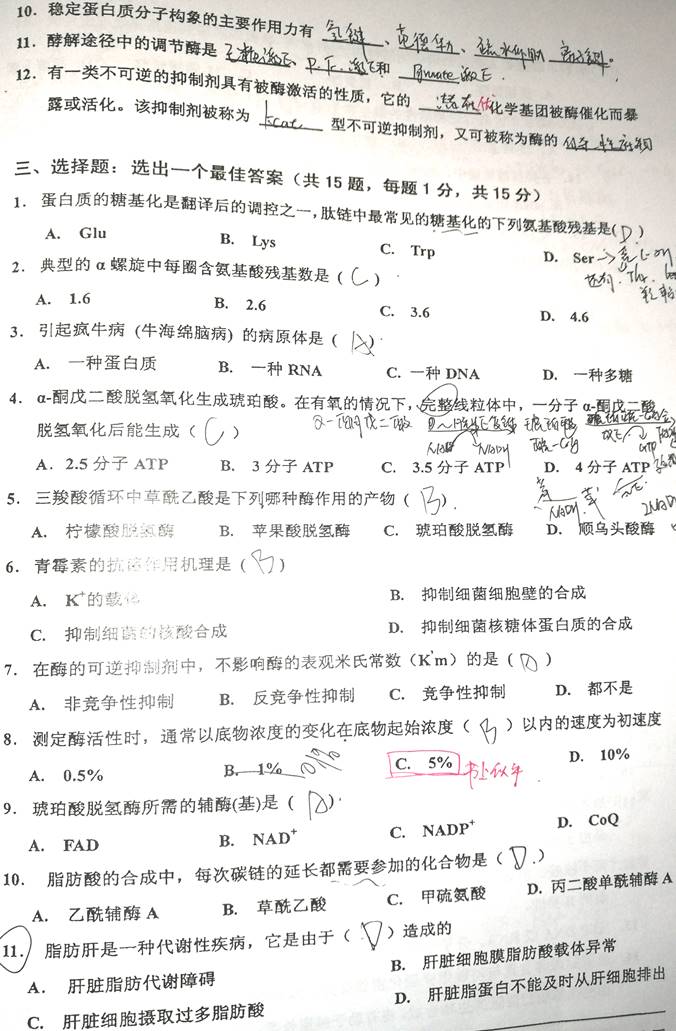 10. 稳定蛋白质分子构象的主要作用力有 氢键、范德华力、疏水作用 离子键。
11. 酵解途径中的调节酶是 己糖激E、P.F.激E和 Pyruvate激E.
12. 有一类不可逆的抑制剂具有被酶激活的性质，它的 潜在化学基团被酶催化而暴
露或活化。该抑制剂被称为 kcat 型不可逆抑制剂，又可被称为酶的
三、选择题：选出一个最佳答案（共 15 题，每题 1 分，共 15 分）
1. 蛋白质的糖基化是翻译后的调控之一，肽链中最常见的糖基化的下列氨基酸残基是( D )
A. Glu B. Lys C. Trp D. Ser
2. 典型的 α 螺旋中每圈含氨基酸残基数是 ( C )
A. 1.6 B. 2.6 C. 3.6 D. 4.6
3. 引起疯牛病（牛海绵脑病）的病原体是 ( A )
A. 一种蛋白质 B. 一种 RNA C. 一种 DNA D. 一种多糖
4. α-酮戊二酸脱氢氧化生成琥珀酸。在有氧的情况下，完整线粒体中，一分子 α-酮戊二酸
脱氢氧化后能生成 ( C )
α-酮戊二酸
NADH
A. 2.5 分子 ATP B. 3 分子 ATP C. 3.5 分子 ATP D. 4 分子 ATP
5. 三羧酸循环中草酰乙酸是下列哪种酶作用的产物 ( B ).
A. 柠檬酸脱氢酶 B. 苹果酸脱氢酶 C. 琥珀酸脱氢酶 D. 顺乌头酸酶
6. 青霉素的抗菌作用机理是 ( B )
A. K⁺的载体 B. 抑制细菌细胞壁的合成
C. 抑制细菌的核酸合成 D. 抑制细菌核糖体蛋白质的合成
7. 在酶的可逆抑制剂中，不影响酶的表观米氏常数（K'm）的是 ( A )
A. 非竞争性抑制 B. 反竞争性抑制 C. 竞争性抑制 D. 都不是
8. 测定酶活性时，通常以底物浓度的变化在底物起始浓度 ( B ) 以内的速度为初速度
A. 0.5% B. 1% C. 5% D. 10%
9. 琥珀酸脱氢酶所需的辅酶(基)是 ( A )
A. FAD B. NAD⁺ C. NADP⁺ D. CoQ
10. 脂肪酸的合成中，每次碳链的延长都需要参加的化合物是 ( D. )
A. 乙酰辅酶 A B. 草酰乙酸 C. 甲硫氨酸 D. 丙二酸单酰辅酶 A
11. 脂肪肝是一种代谢性疾病，它是由于 ( D ) 造成的
A. 肝脏脂肪代谢障碍 B. 肝脏细胞膜脂肪酸载体异常
C. 肝脏细胞摄取过多脂肪酸 D. 肝脏脂蛋白不能及时从肝细胞排出